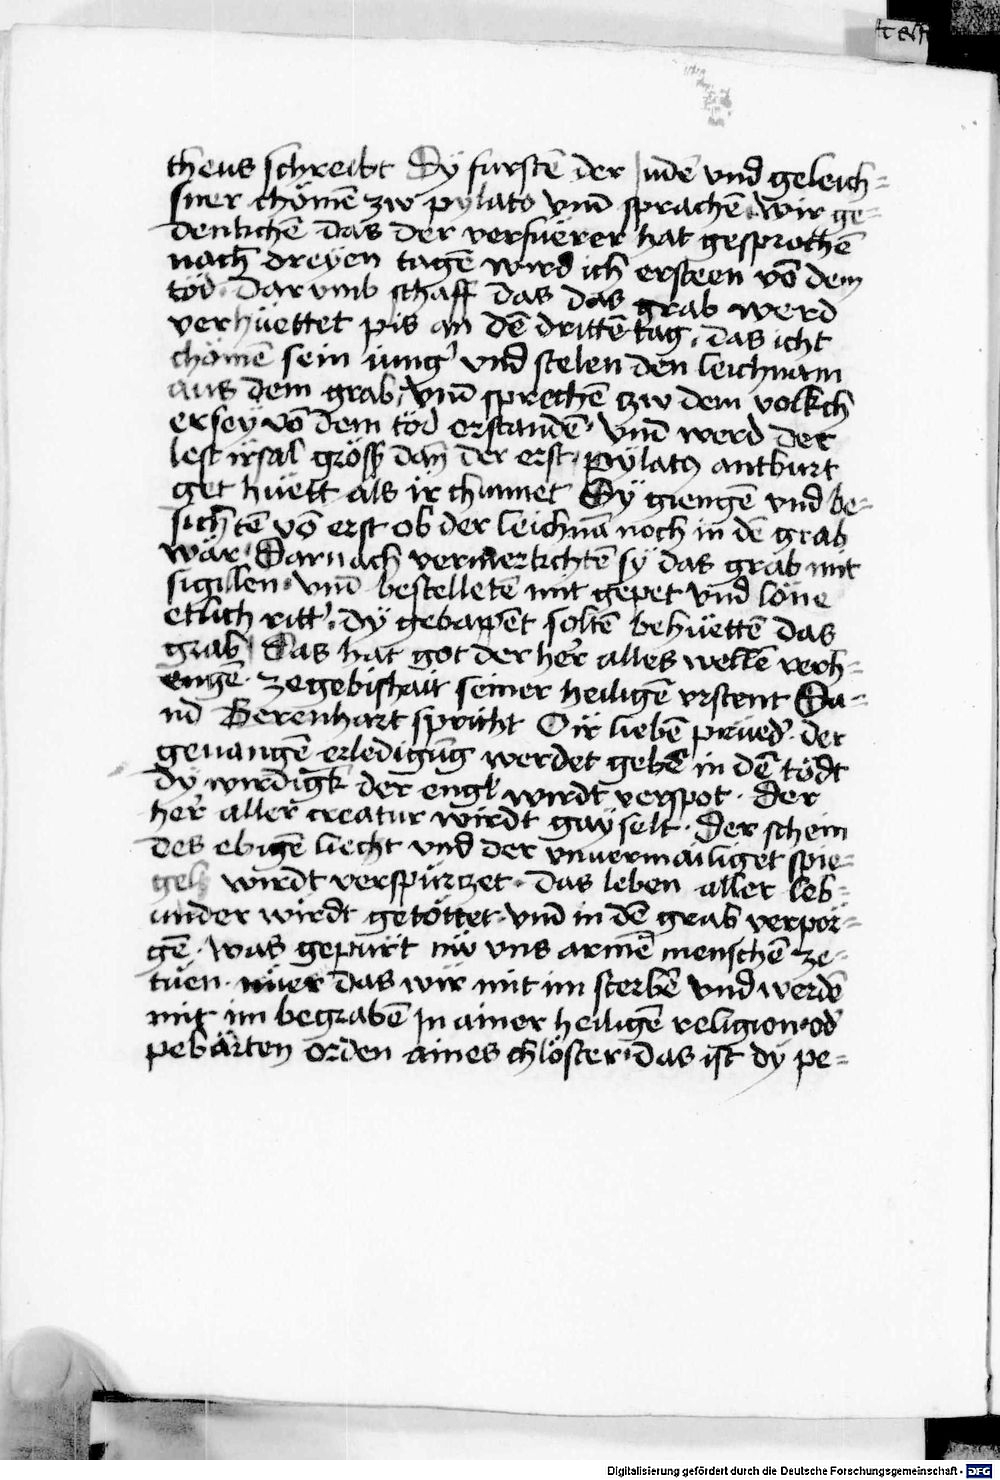 theus schreibt Dÿ furstē der Judē vnd geleich=
sner chömē zw pylato vnd sprachē wir ge=
denkchē das der verfüerer hat gesprochē
nach dreÿen tagē wird ich ersteen vō dem
töd. dar vmb schaff das das grab werd
verhüettet pis an dē drittē tag. das icht
chömē sein iung' vnd stelen den leichnam
aus dem grab. vnd sprechē tzw dem volkch
er seÿ vō dem töd erstandē. vnd werd der
lest irsal gröss dan der erst. pÿlatus antburt
get hüett als ir chunnet Sÿ giengē vnd be=
sichtē vō erst ob der leichnā noch in dē grab
wär. Darnach vermerkchtē sÿ das grab mit
sigillen. vnd bestelletē mit gepet vnd löne
etlich ritt'. dÿ gebapēt soltē behüettē das
grab Das hat got der her alles wellē verh=
engē. ze gebishait seiner heiligē vrstent Sa=
nd Berenhart spricht O ir liebē prüed'. der
geuangē erledigūg werdet gebē in dē tödt
dÿ wirdigk der engl wirdt verspot. Der
her aller creatur wirdt gaÿselt. Der schein
des ebigē liecht vnd der vnuermailiget spie=
gel wirdt verspürtzet. das leben aller leb=
under wirdt getöttet. vnd in dē grab verpor=
gē. was gepürt nw vns armē menschē ze=
tüen. nüer das wir mit im sterbē vnd werdē
mit im begrabē Jn ainer heiligē religion. od'
pebärten orden aines chlöster. das ist dÿ pe=
Digitalisierung gefördert durch die Deutsche Forschungsgemeinschaft - DFG